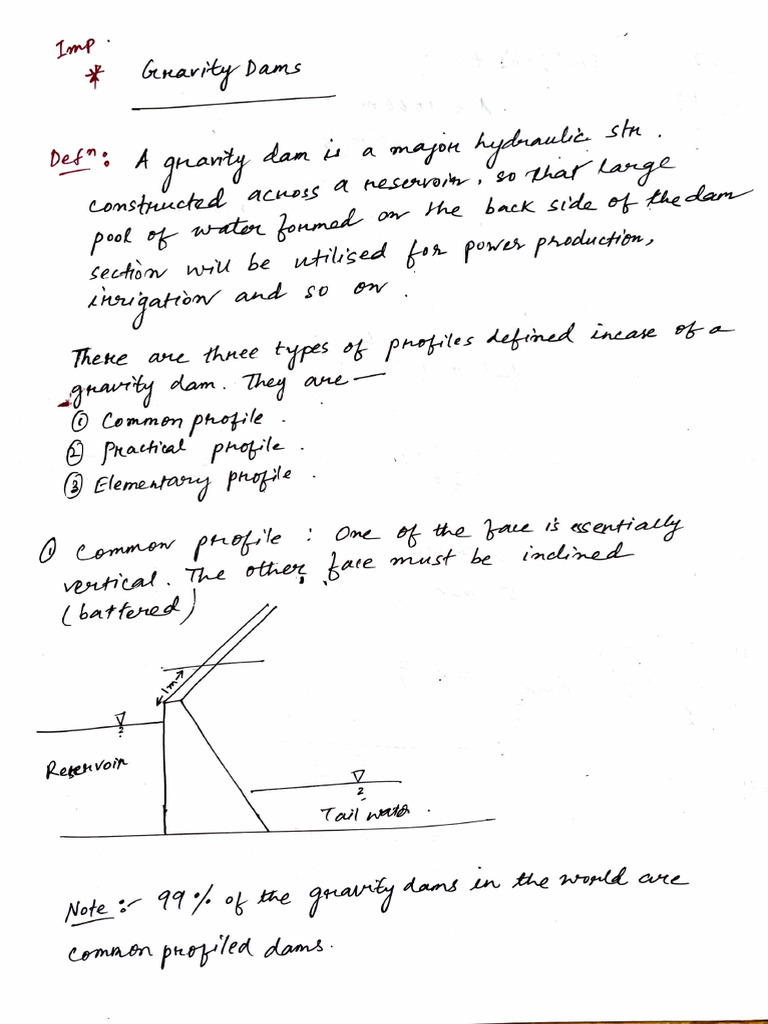 Imp.
* Gravity Dams
Defⁿ: A gravity dam is a major hydraulic str.
constructed across a reservoir, so that large
pool of water formed on the back side of the dam
section will be utilised for power production,
irrigation and so on.
There are three types of profiles defined incase of a
gravity dam. They are —
① Common profile.
② Practical profile.
③ Elementary profile.
① Common profile : One of the face is essentially
vertical. The other face must be inclined
(battered)
1m
Reservoir
Tail water.
Note :- 99% of the gravity dams in the world are
common profiled dams.